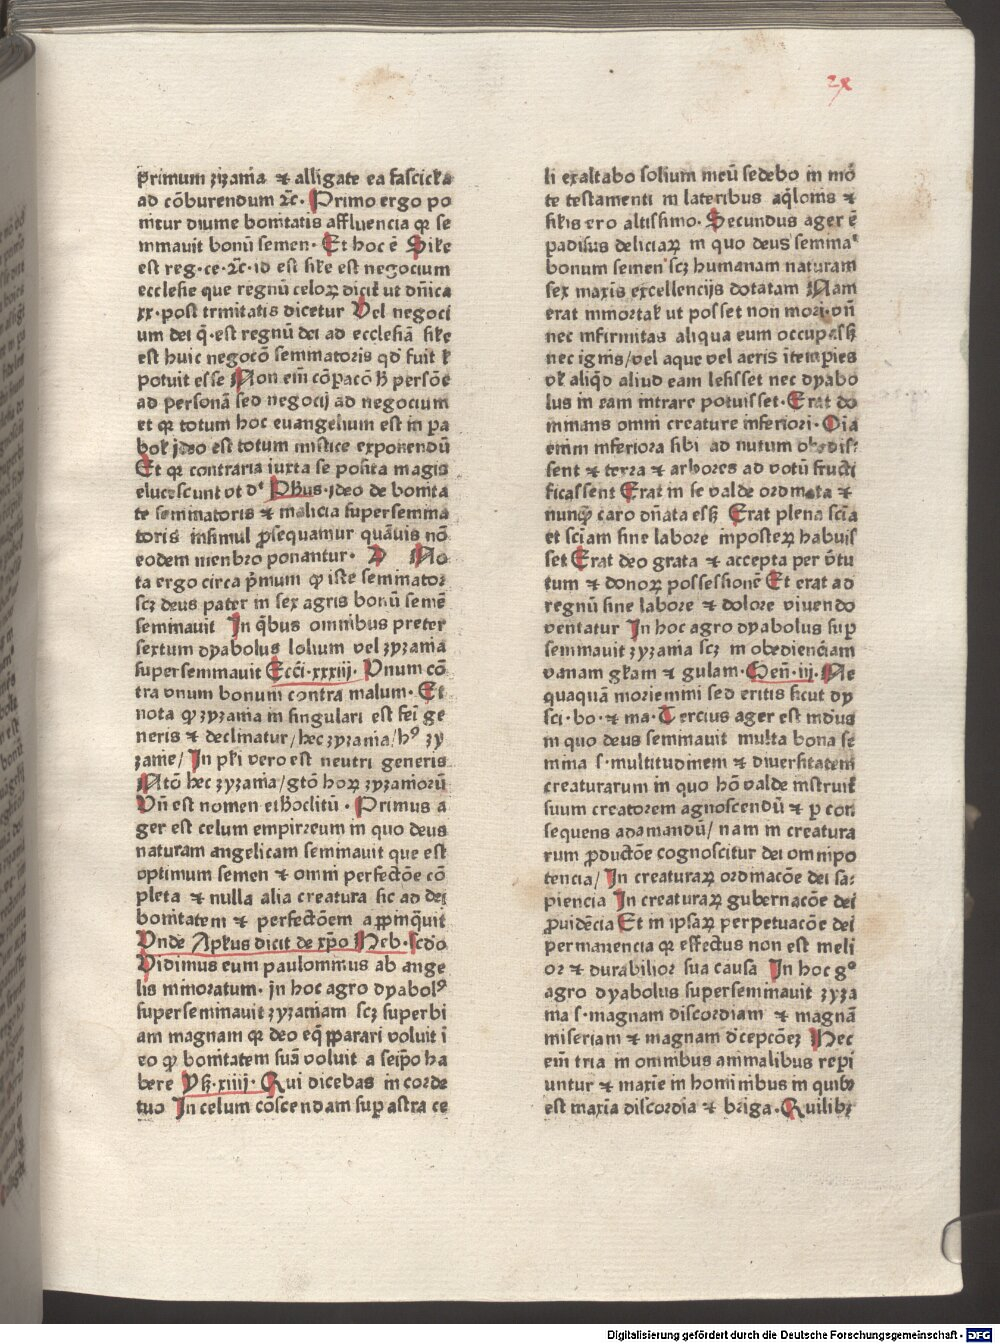 zx
primum zizania ⁊ alligate ea fascicła
ad cōburendum ⁊c̄. Primo ergo po
nitur diuine bonitatis affluencia qꝛ se
minauit bonū semen. Et hoc ē Siłe
est reg. ce. ⁊c̄. id est siłe est negocium
ecclesie que regnū celoꝝ dicit̄ ut dn̄ica
xx. post trinitatis dicetur Vel negoci
um dei q̄. est regnū dei ad ecclesiā siłe
est huic negocō seminatoris qd̄ fuit ł
potuit esse Non em̄ cōpacō ꝫ̄ persōe
ad personā sed negocij ad negocium
et qꝛ totum hoc euangelium est in pa
bol̄ ideo est totum mistice exponendū
Et qꝛ contraria iuxta se posita magis
elucescunt vt dt̄ Pħus. ideo de bonita
te seminatoris ⁊ malicia superseminа
toris insimul ꝓsequamur quāuis nō
eodem menbro ponantur. No
ta ergo circa pͥmum ꝙ iste seminator
scꝫ deus pater in sex agris bonū semē
seminauit In qͥbus omnibus preter
sextum dyabolus lolium vel zyzania
superseminauit Ecci. xxxiij. Vnum cō
tra vnum bonum contra malum. Et
nota ꝙ zyzania in singulari est fei̅ ge
neris ⁊ declinatur/hec zyzania/hꝰ zy
zanie/ In płi vero est neutri generis
Ntō hec zyzania/gtō hoꝝ zyzaniorū
Vn̄ est nomen etħoclitū. Primus a
ger est celum empirreum in quo deus
naturam angelicam seminauit que est
optimum semen ⁊ omni perfectōe cō
pleta ⁊ nulla alia creatura sic ad dei
bonitatem ⁊ perfectōem appinq̄uit
Vnde Apłus dicit de xp̄o Heb. scdo
Vidimus eum paulominus ab ange
lis minoratum. in hoc agro dyabolꝰ
superseminauit zyzaniam scꝫ superbi
am magnam qꝛ deo eq̄ ꝑparari voluit i
eo ꝙ bonitatem suā voluit a seip̄o ha
bere Yſꝫ. xiiij. Qui dicebas in corde
tuo In celum cōscendam sup̄ astra ce
li exaltabo solium meū sedebo in mō
te testamenti in lateribus aq̄lonis ⁊
siłis ero altissimo. Secundus ager ē
padisus deliciaꝝ in quo deus seminaͭ
bonum semen scꝫ humanam naturam
sex maxīs excellencijs dotatam Nam
erat inmortał ut posset non mori. vn̄
nec infirmitas aliqua eum occupasꝫ
nec ignis/vel aque vel aeris ītempies
vł aliqͥd aliud eam lesisset nec dyabo
lus in eam intrare potuisset. Erat do
minans omni creature inferiori. Oia
enim inferiora sibi ad nutum obedis⸗
sent ⁊ terra ⁊ arbores ad votū fructi
ficassent Erat in se valde ordinata ⁊
nunqͣ caro dn̄ata esꝫ Erat plena scīa
et scīam sine labore inposteꝝ habuis
set Erat deo grata ⁊ accepta per v̄tu
tum ⁊ donoꝝ possessionē Et erat ad
regnū sine labore ⁊ dolore viuendo
ventatur In hoc agro dyabolus sup̄
seminauit zyzania scꝫ in obedienciam
vanam głam ⁊ gulam. Gen̄. iij. Ne
quaquā moriemini sed eritis sicut dy
sci. bo. ⁊ ma. Tercius ager est mūdus
in quo deus seminauit multa bona se
mina s. multitudinem ⁊ diuersitatem
creaturarum in quo hō valde instruit̄
suum creatorem agnoscendū ⁊ ꝑ con
sequens adamandū/ nam in creatura
rum ꝓductōe cognoscitur dei omnipo
tencia/ In creaturaꝝ ordinacōe dei sa⸗
piencia In creaturaꝝ gubernacōe dei
ꝓuidēcia Et in ip̄saꝝ perpetuacōe dei
permanencia qꝛ effectus non est meli
or ⁊ durabilior sua causa In hoc gͦ
agro dyabolus superseminauit zyza
nia s. magnam discordiam ⁊ magnā
miseriam ⁊ magnam dēcepcōeꝫ Hec
em̄ tria in omnibus animalibus repi
untur ⁊ maxīe in hominibus in quibꝫ
est maxīa discordia ⁊ briga. Quilibꝫ
Digitalisierung gefördert durch die Deutsche Forschungsgemeinschaft - DFG